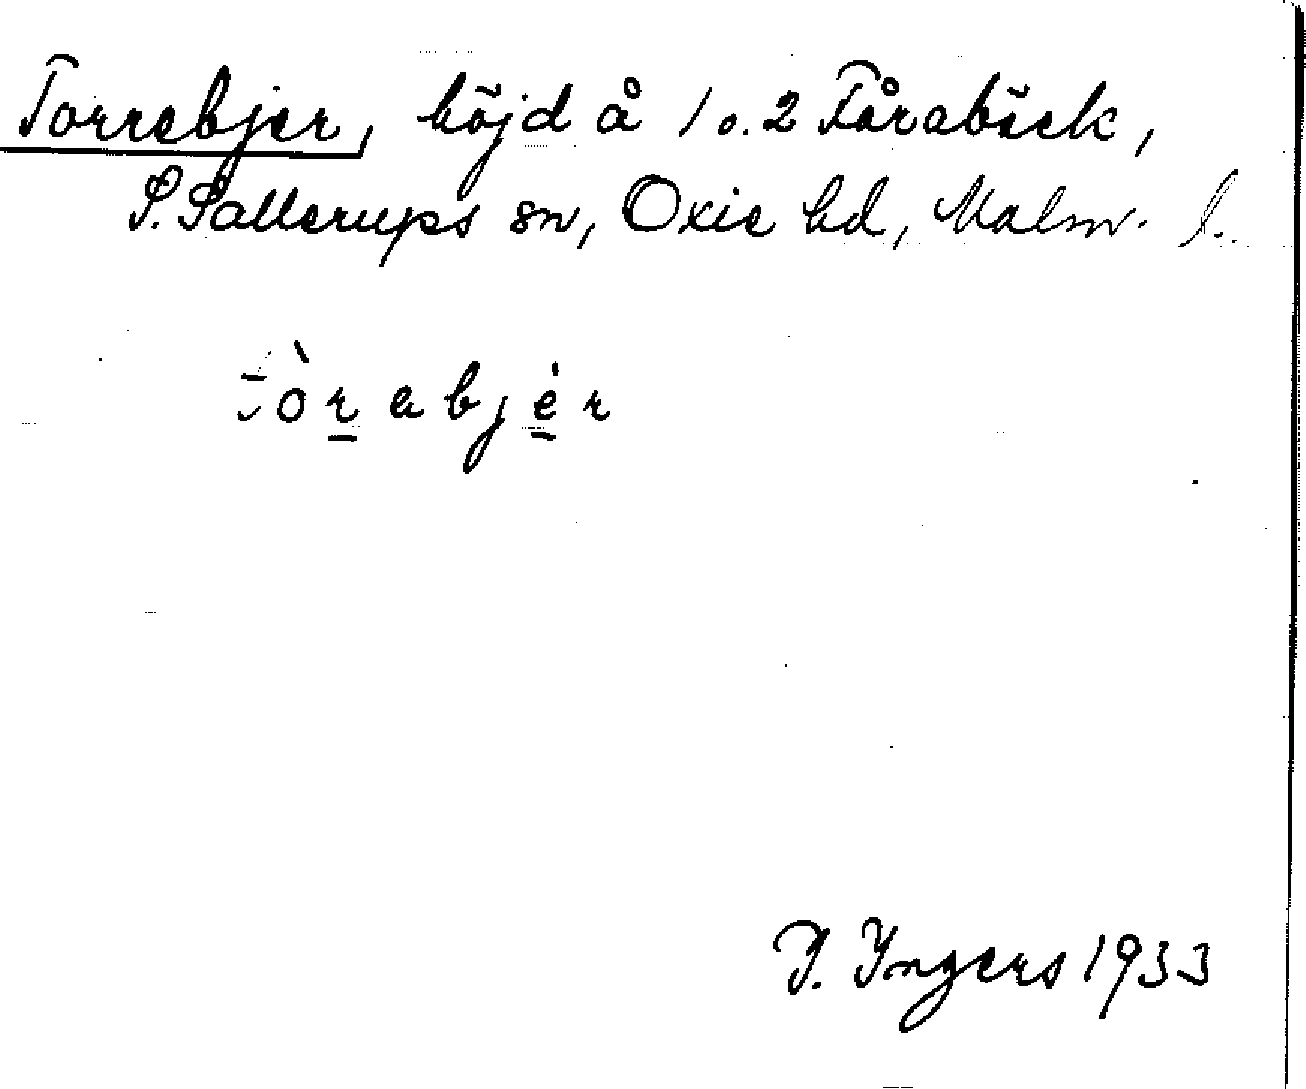 Torrebjer, höjd å 1 o. 2 Fårabäck,
S. Sallerups sn, Oxie hd, Malm. l.
tòrabjér
I. Ingers 1933